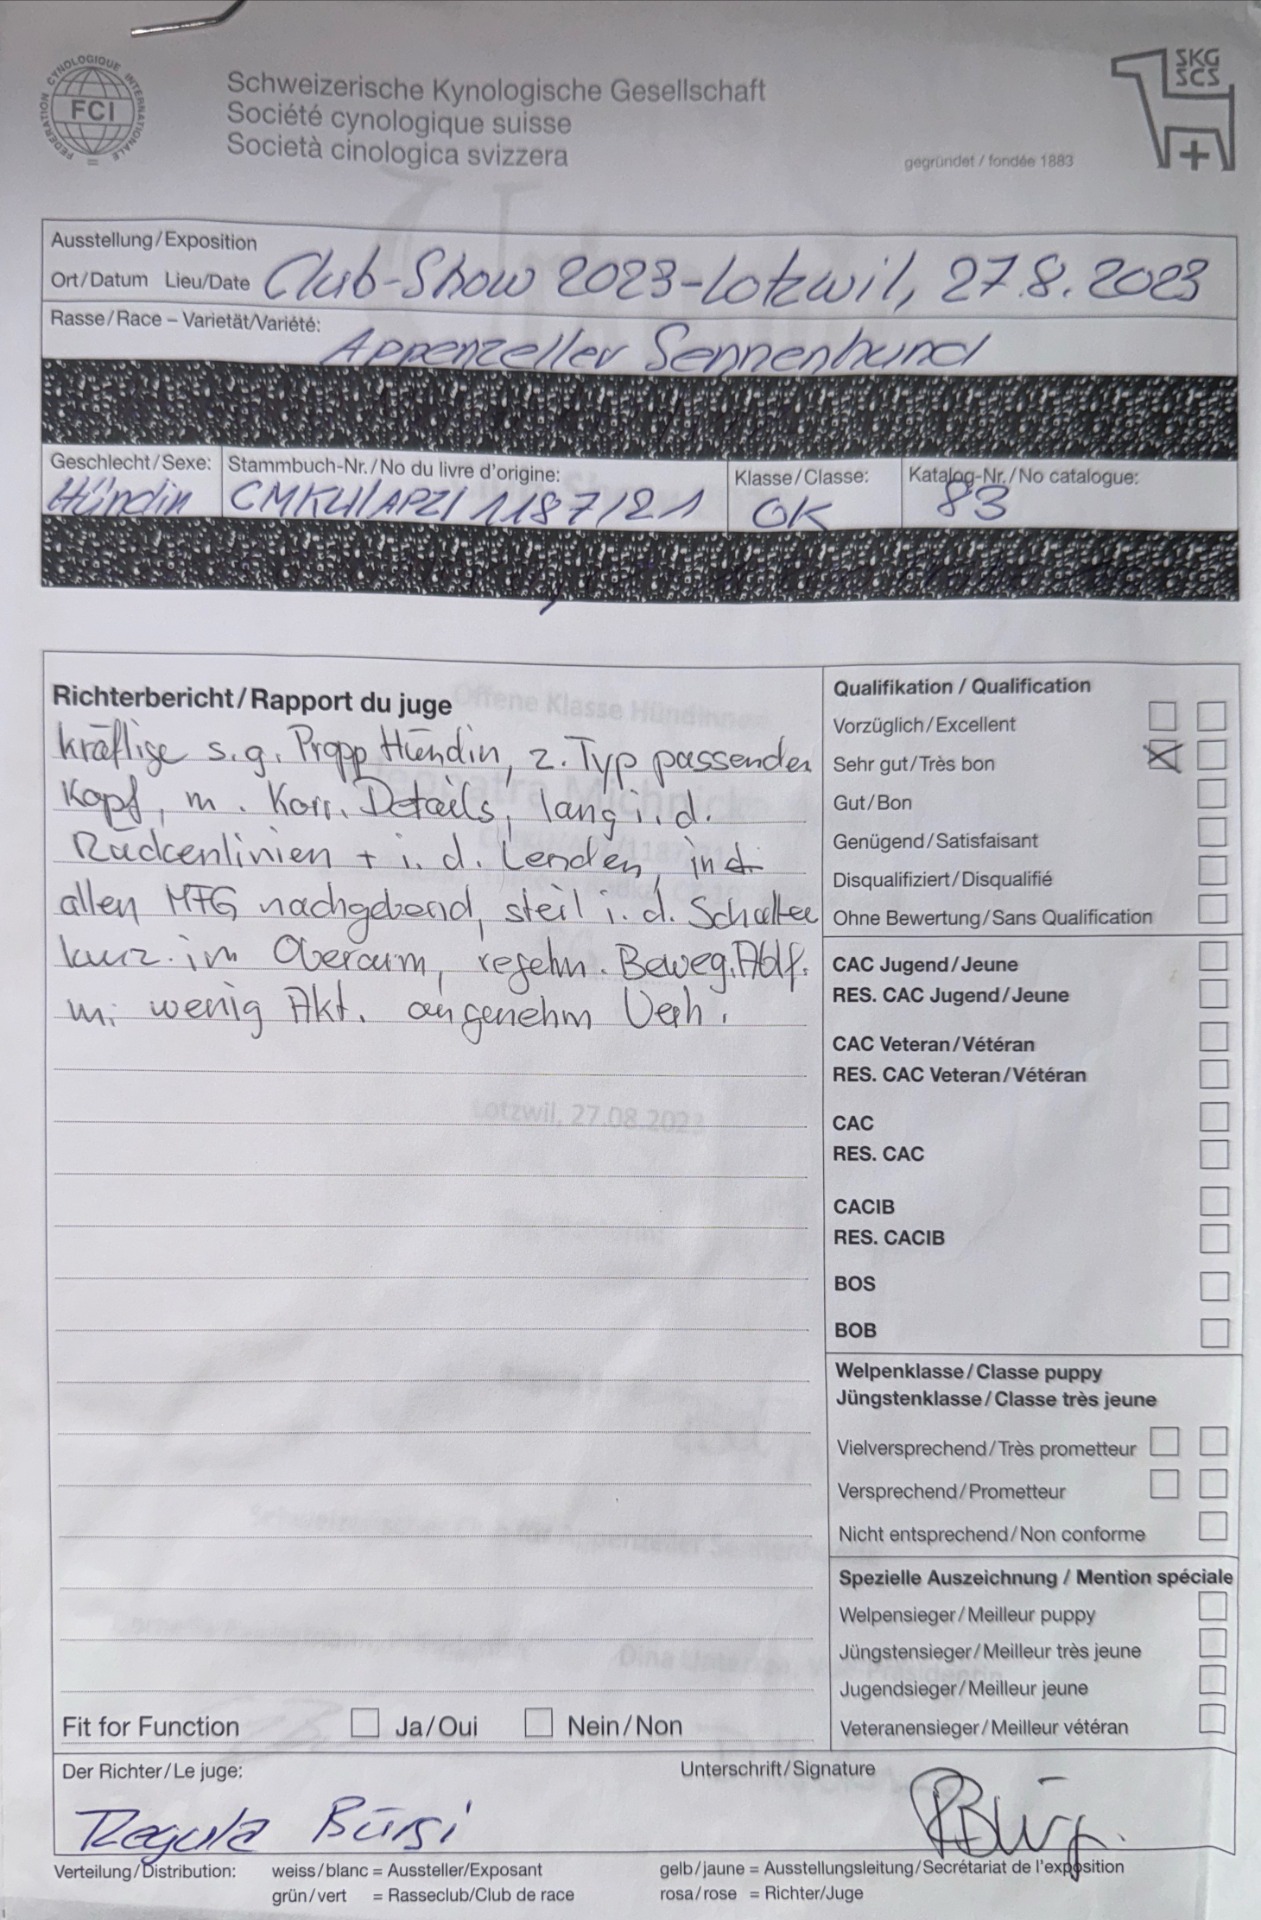 FEDERATION CYNOLOGIQUE INTERNATIONALE
FCI
Schweizerische Kynologische Gesellschaft
Société cynologique suisse
Società cinologica svizzera
SKG
SCS
gegründet / fondée 1883
Ausstellung/Exposition
Ort/Datum Lieu/Date Club-Show 2023-Lotzwil, 27.8.2023
Rasse/Race – Varietät/Variété:
Appenzeller Sennenhund
Geschlecht/Sexe: Stammbuch-Nr./No du livre d'origine: Klasse/Classe: Katalog-Nr./No catalogue:
Hündin CMKU/APZ/1187/21 OK 83
Richterbericht/Rapport du juge
kräftige s.g. Prop Hündin, z. Typ passenden
Kopf, m. Korr. Details, lang i.d.
Rückenlinien + i.d. Lenden, in
allen MFG nachgebend, steil i.d. Schulter
kurz im Oberarm, Beweg. Abl.
wenig Akt. angenehm Verh.
Lotzwil, 27.08.2023
Qualifikation / Qualification
Vorzüglich/Excellent
Sehr gut/Très bon
Gut/Bon
Genügend/Satisfaisant
Disqualifiziert/Disqualifié
Ohne Bewertung/Sans Qualification
CAC Jugend/Jeune
RES. CAC Jugend/Jeune
CAC Veteran/Vétéran
RES. CAC Veteran/Vétéran
CAC
RES. CAC
CACIB
RES. CACIB
BOS
BOB
Welpenklasse/Classe puppy
Jüngstenklasse/Classe très jeune
Vielversprechend/Très prometteur
Versprechend/Prometteur
Nicht entsprechend/Non conforme
Spezielle Auszeichnung / Mention spéciale
Welpensieger/Meilleur puppy
Jüngstensieger/Meilleur très jeune
Jugendsieger/Meilleur jeune
Veteranensieger/Meilleur vétéran
Fit for Function Ja/Oui Nein/Non
Der Richter/Le juge: Unterschrift/Signature
Regula Bürgi
Verteilung/Distribution: weiss/blanc = Aussteller/Exposant gelb/jaune = Ausstellungsleitung/Secrétariat de l'exposition
grün/vert = Rasseclub/Club de race rosa/rose = Richter/Juge